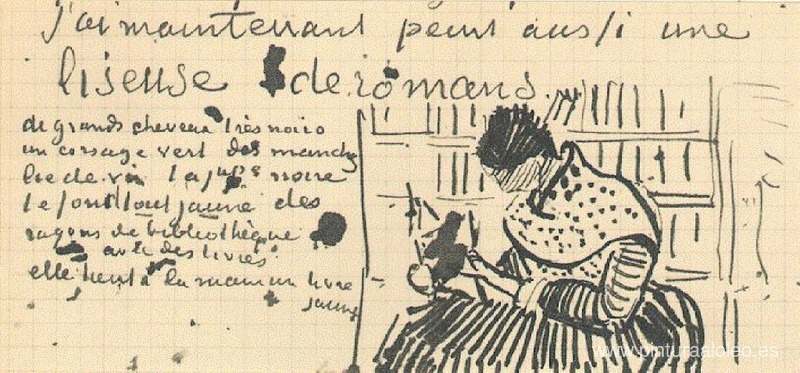 j'ai maintenant peint aussi une
liseuse de romans.
de grands cheveux très noirs
un corsage vert des manches
lie de vin la jupe noire
le fond tout jaune des
rayons de bibliothèque
avec des livres
elle tient à la main un livre
jaune
www.pinturaaloleo.es